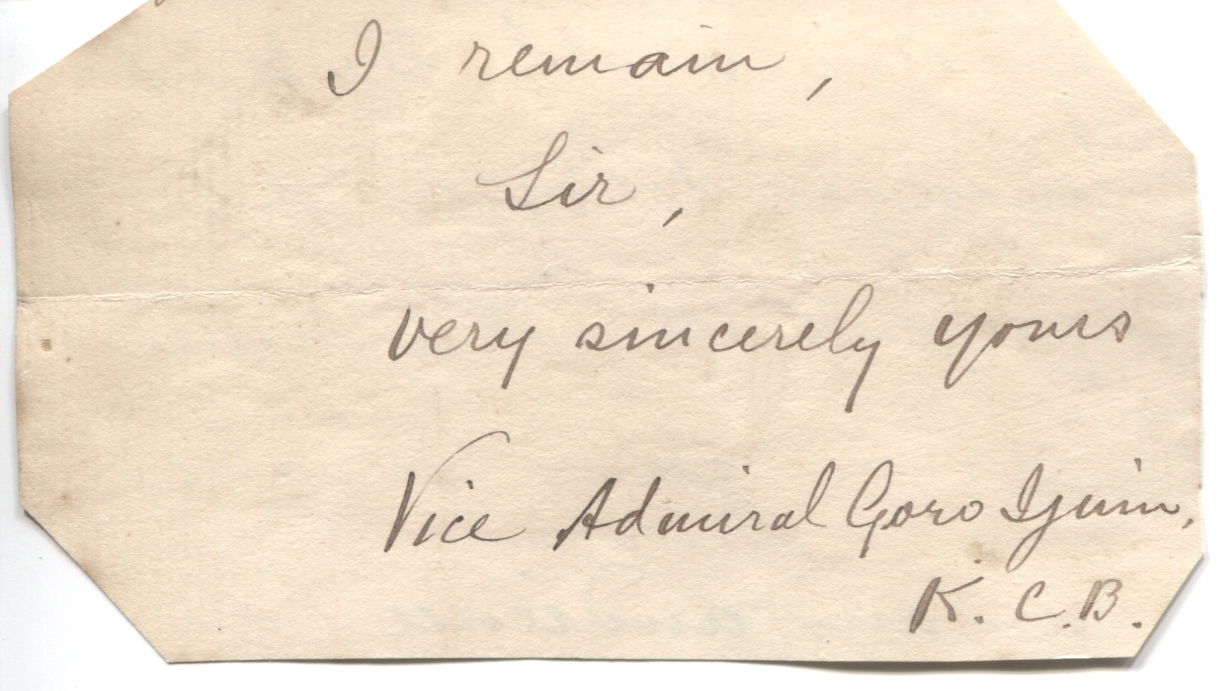 I remain,
Sir,
very sincerely yours
Vice Admiral Goro Ijuin,
K. C. B.